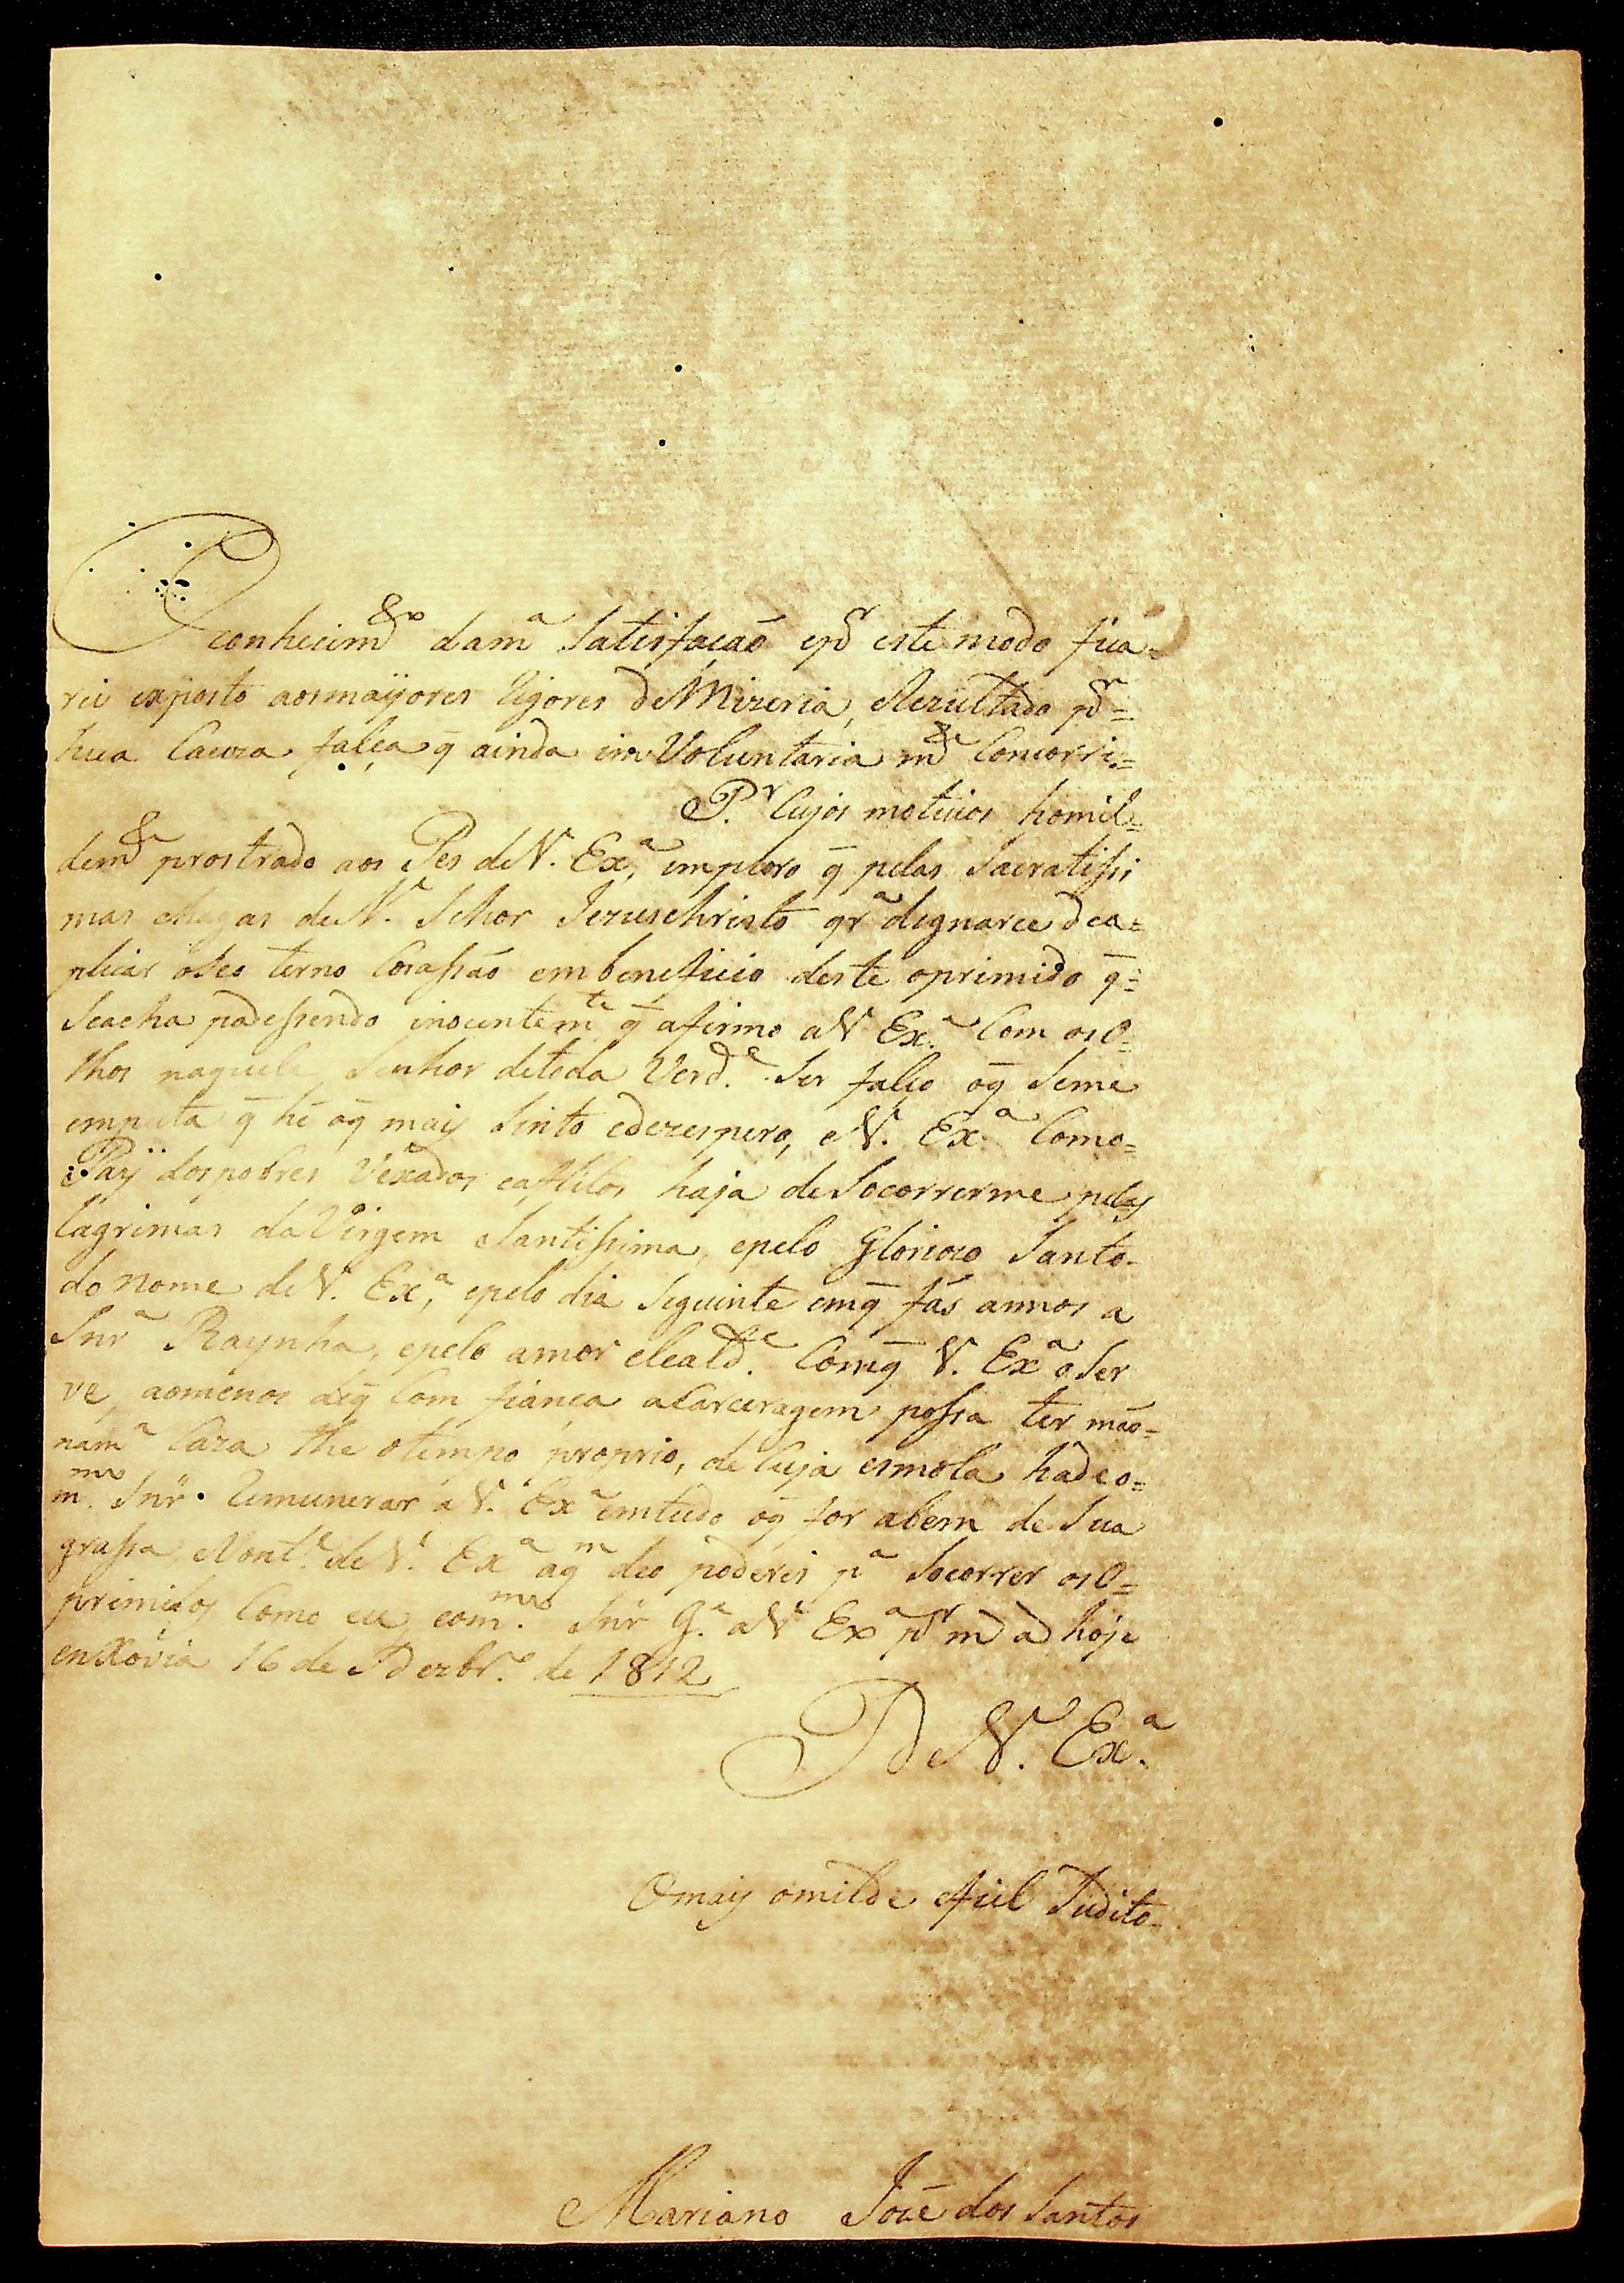 conhecimto dama Satisfação epr este modo fica-
rei exposto aosmayores rigores deMizeria, eRezultado pr=
hua Cauza falça q̄ ainda inVoluntaria mte Concorri=
P.r Cujos motivos homil=
demte prostrado aos Pes deV. Ex.a, emploro q̄ pelas Sacratissi
mas Chagas deN. Sehor Jezuschristo qra dignarce dea=
plicar oseo terno Corassão embeneficio deste oprimido q̄=
Seacha padessendo inocentemte q̄ afirmo aV Ex.a Com os O=
lhos naquele Senhor detoda Verd.e Ser falço oq̄ Seme
emputa q̄ hé oq̄ mais Sinto edezespero, eV. Ex.a Como=
Paÿ dospobres Vexados eaflitos haja deSocorrerme pelas
lagrimas daVirgem Santissima, epelo Gloriozo Santo-
do nome deV. Ex.a, epelo dia Seguinte emq̄ fás annos a
Snr.a Raynha, epelo amor elealde. Comq̄ V. Ex.a oSer
ve, aomenos aq̄ Com fiança aCarceragem possa ter mão=
nama Caza the otempo proprio, de Cuja esmola hadeo=
m.mo Snr. Remunerar aV. Ex.a emtudo oq̄ for abem de Sua
grassa, eVont.e deV. Ex.a aq̄m deo poderes p.a Socorrer os O=
primidos Como eu, eom.mo Snr G.e aV Ex.a pr m a hoje
enXovia 16 de Dezbr.o de 1812
De V. Ex.a
Omais omilde efiel Sudito-
Mariano José dos Santos